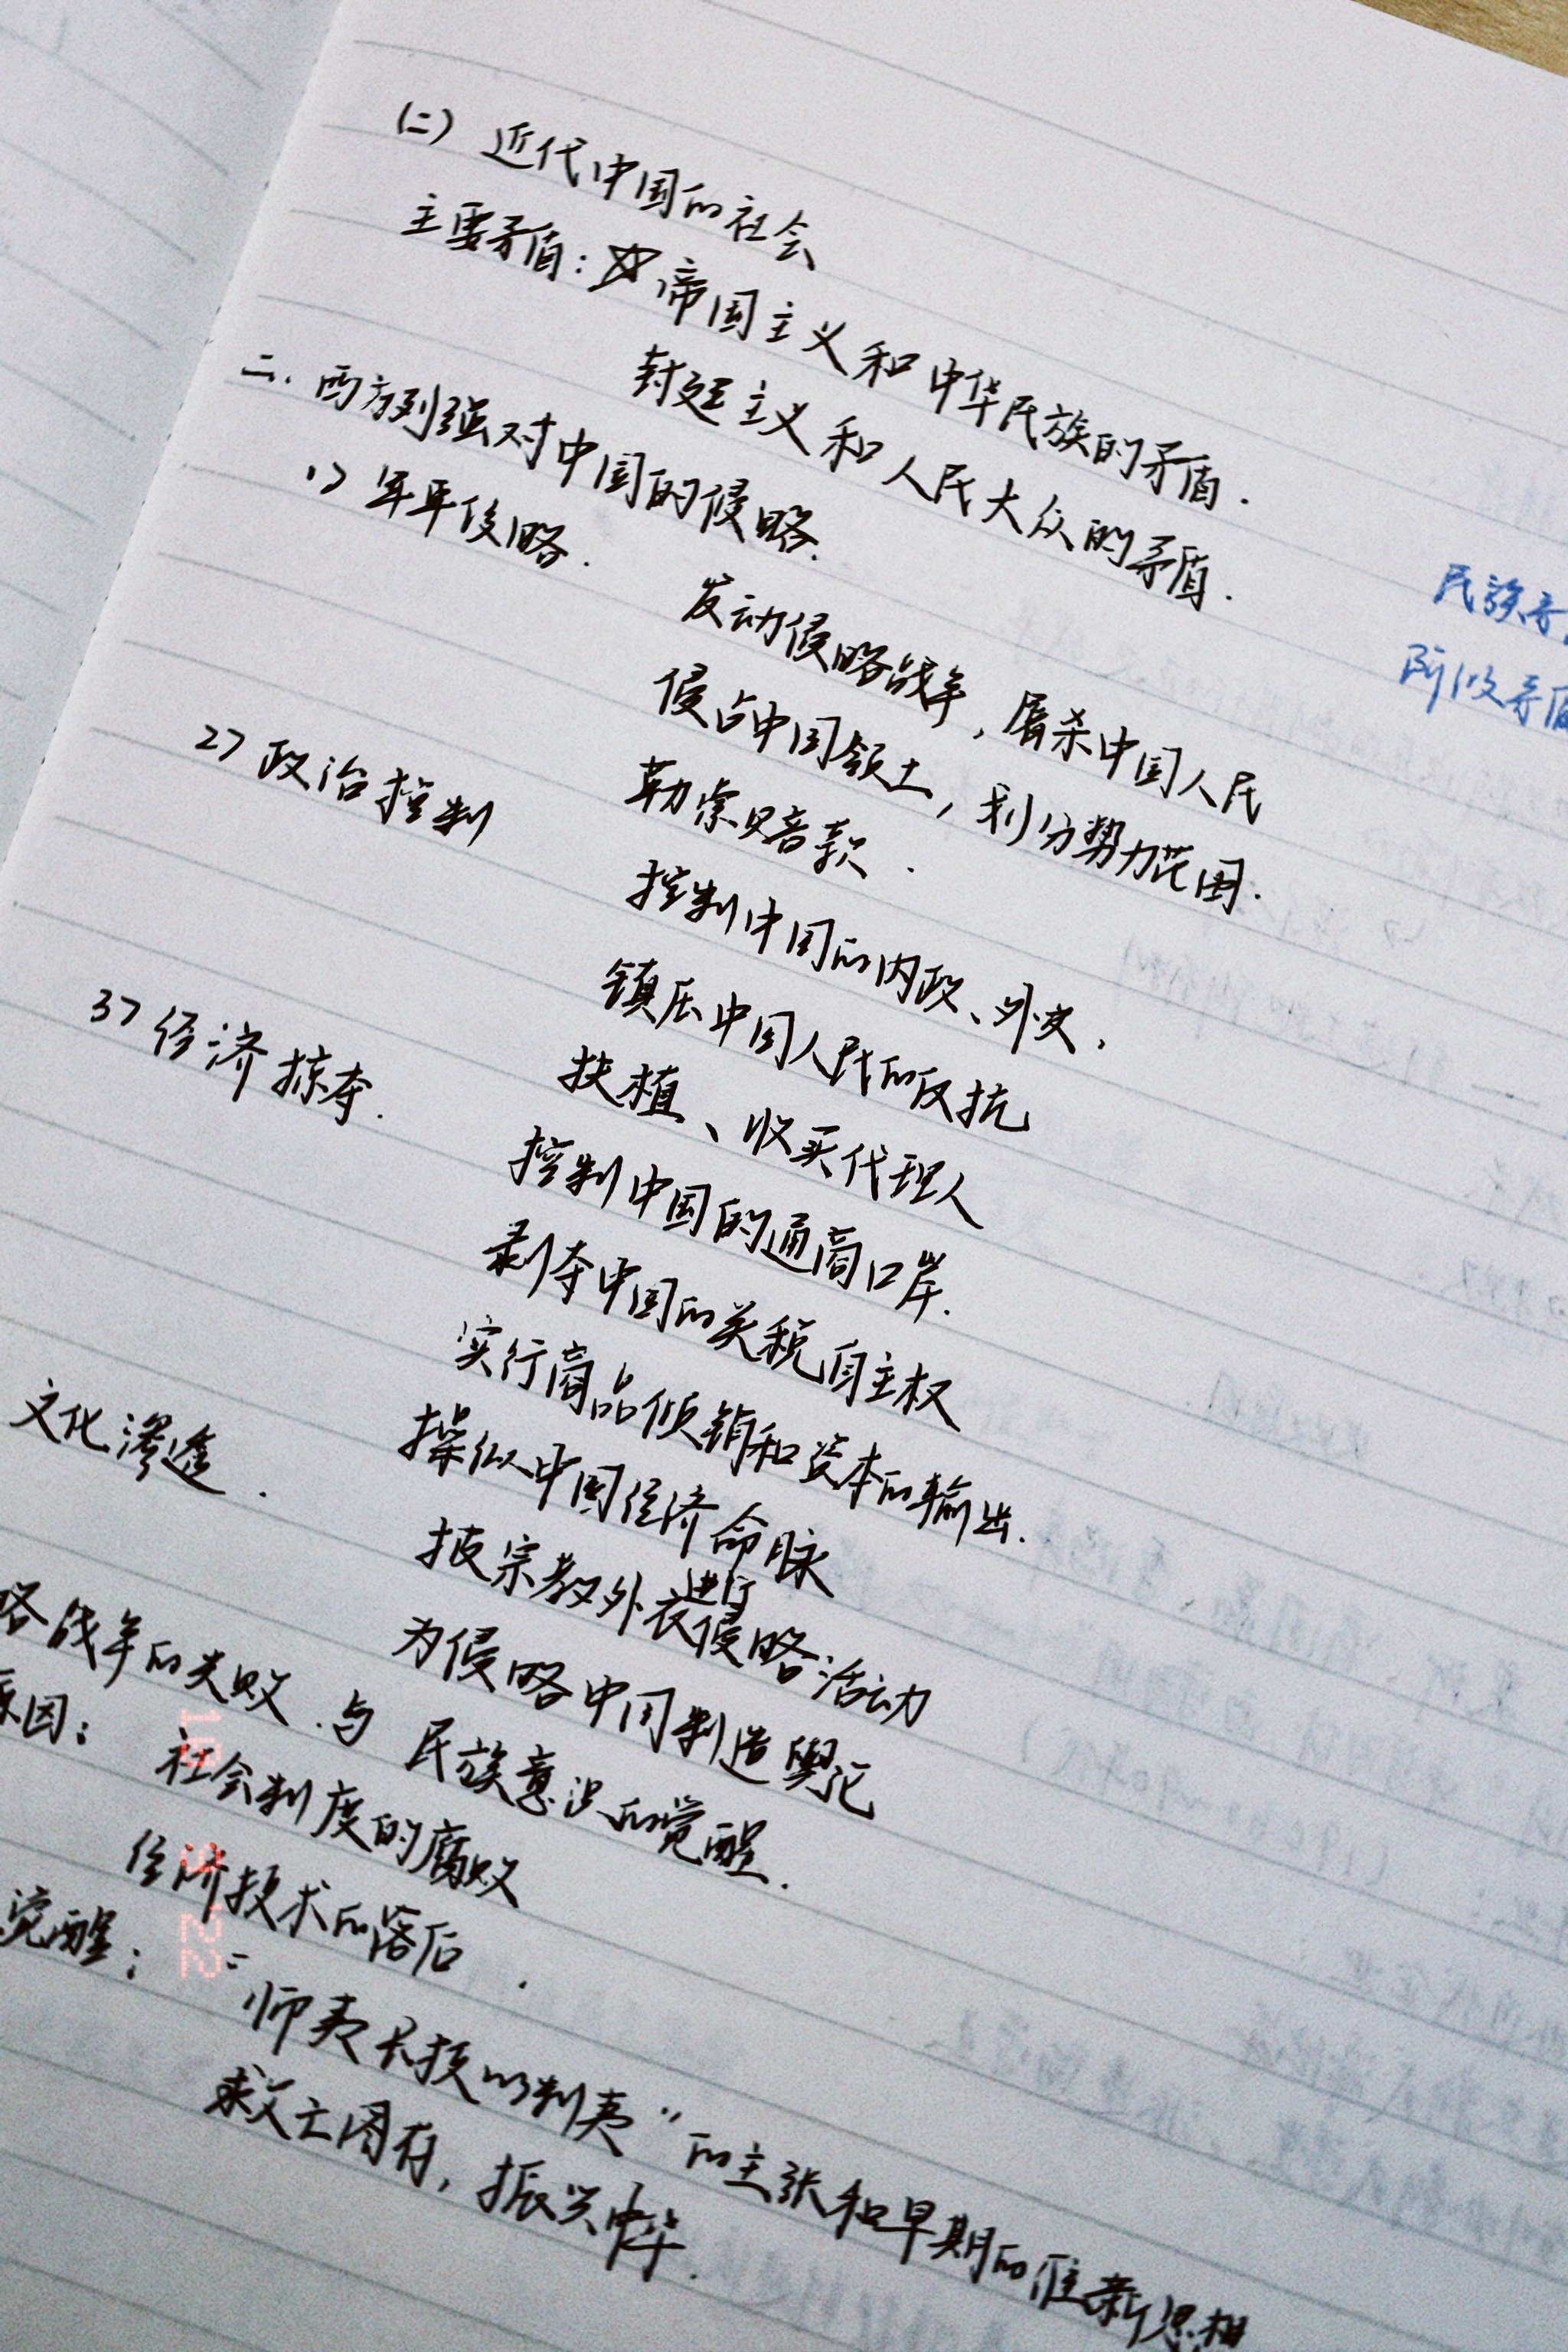 (二) 近代中国的社会
主要矛盾: 帝国主义和中华民族的矛盾.
封建主义和人民大众的矛盾.
民族矛
阶级矛盾
二. 西方列强对中国的侵略.
1> 军事侵略.
发动侵略战争, 屠杀中国人民
侵占中国领土, 划分势力范围.
勒索赔款.
2> 政治控制
控制中国的内政、外交,
镇压中国人民的反抗
扶植、收买代理人
3> 经济掠夺.
控制中国的通商口岸.
剥夺中国的关税自主权
实行商品倾销和资本的输出.
操纵中国经济命脉
文化渗透.
披宗教外衣进行侵略活动
为侵略中国制造舆论
略战争的失败与民族意识的觉醒.
原因: 社会制度的腐败
经济技术的落后.
觉醒: "师夷长技以制夷"的主张和早期的维新思想
救亡图存, 振兴中华.